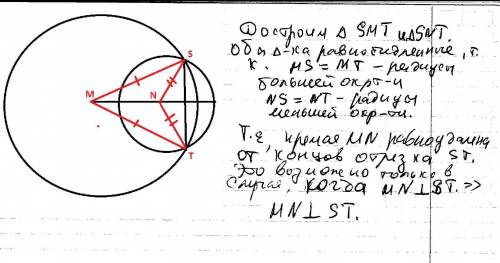 S
M
N
T
Достроим Δ SMT и Δ SNT.
Оба Δ-ка равнобедренные, т.
к. MS = MT - радиусы
большей окр-ти
NS = NT - радиусы
меньшей окр-ти.
Т.е. прямая MN равноудалена
от концов отрезка ST.
Это возможно только в
случае, когда MN⊥ST. =>
MN⊥ST.